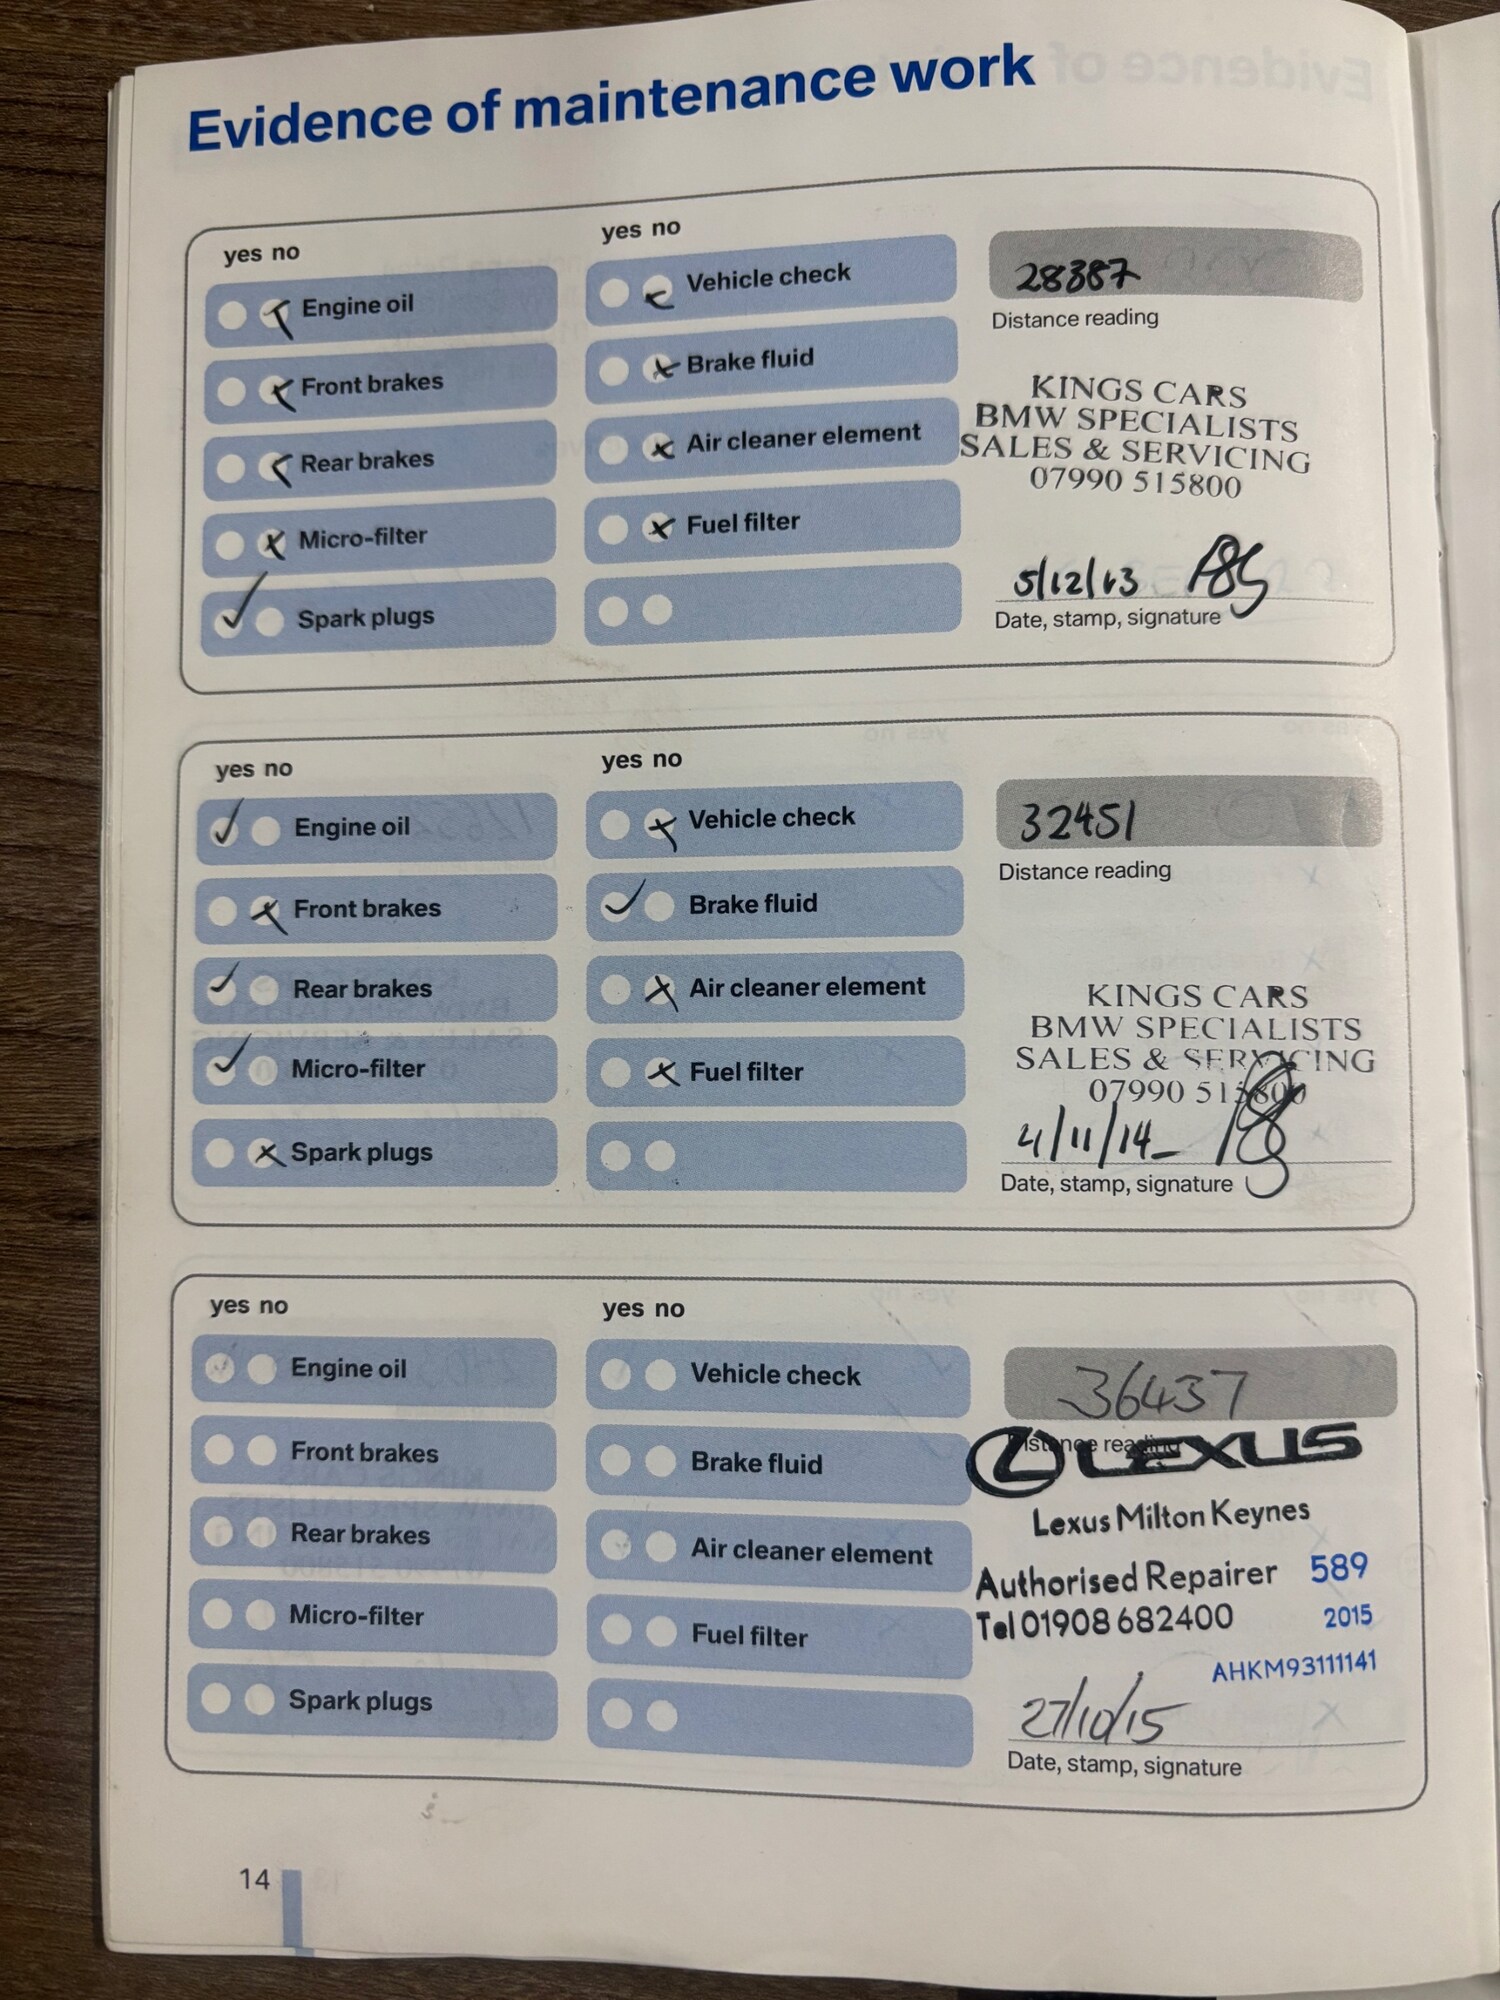 Evidence of maintenance work
yes no
Engine oil
Front brakes
Rear brakes
Micro-filter
Spark plugs
yes no
Vehicle check
Brake fluid
Air cleaner element
Fuel filter
28387
Distance reading
KINGS CARS
BMW SPECIALISTS
SALES & SERVICING
07990 515800
5/12/13
Date, stamp, signature
yes no
Engine oil
Front brakes
Rear brakes
Micro-filter
Spark plugs
yes no
Vehicle check
Brake fluid
Air cleaner element
Fuel filter
32451
Distance reading
KINGS CARS
BMW SPECIALISTS
SALES & SERVICING
07990 515800
4/11/14
Date, stamp, signature
yes no
Engine oil
Front brakes
Rear brakes
Micro-filter
Spark plugs
yes no
Vehicle check
Brake fluid
Air cleaner element
Fuel filter
36437
Distance reading
LEXUS
Lexus Milton Keynes
Authorised Repairer 589
Tel 01908 682400 2015
AHKM93111141
27/10/15
Date, stamp, signature
14